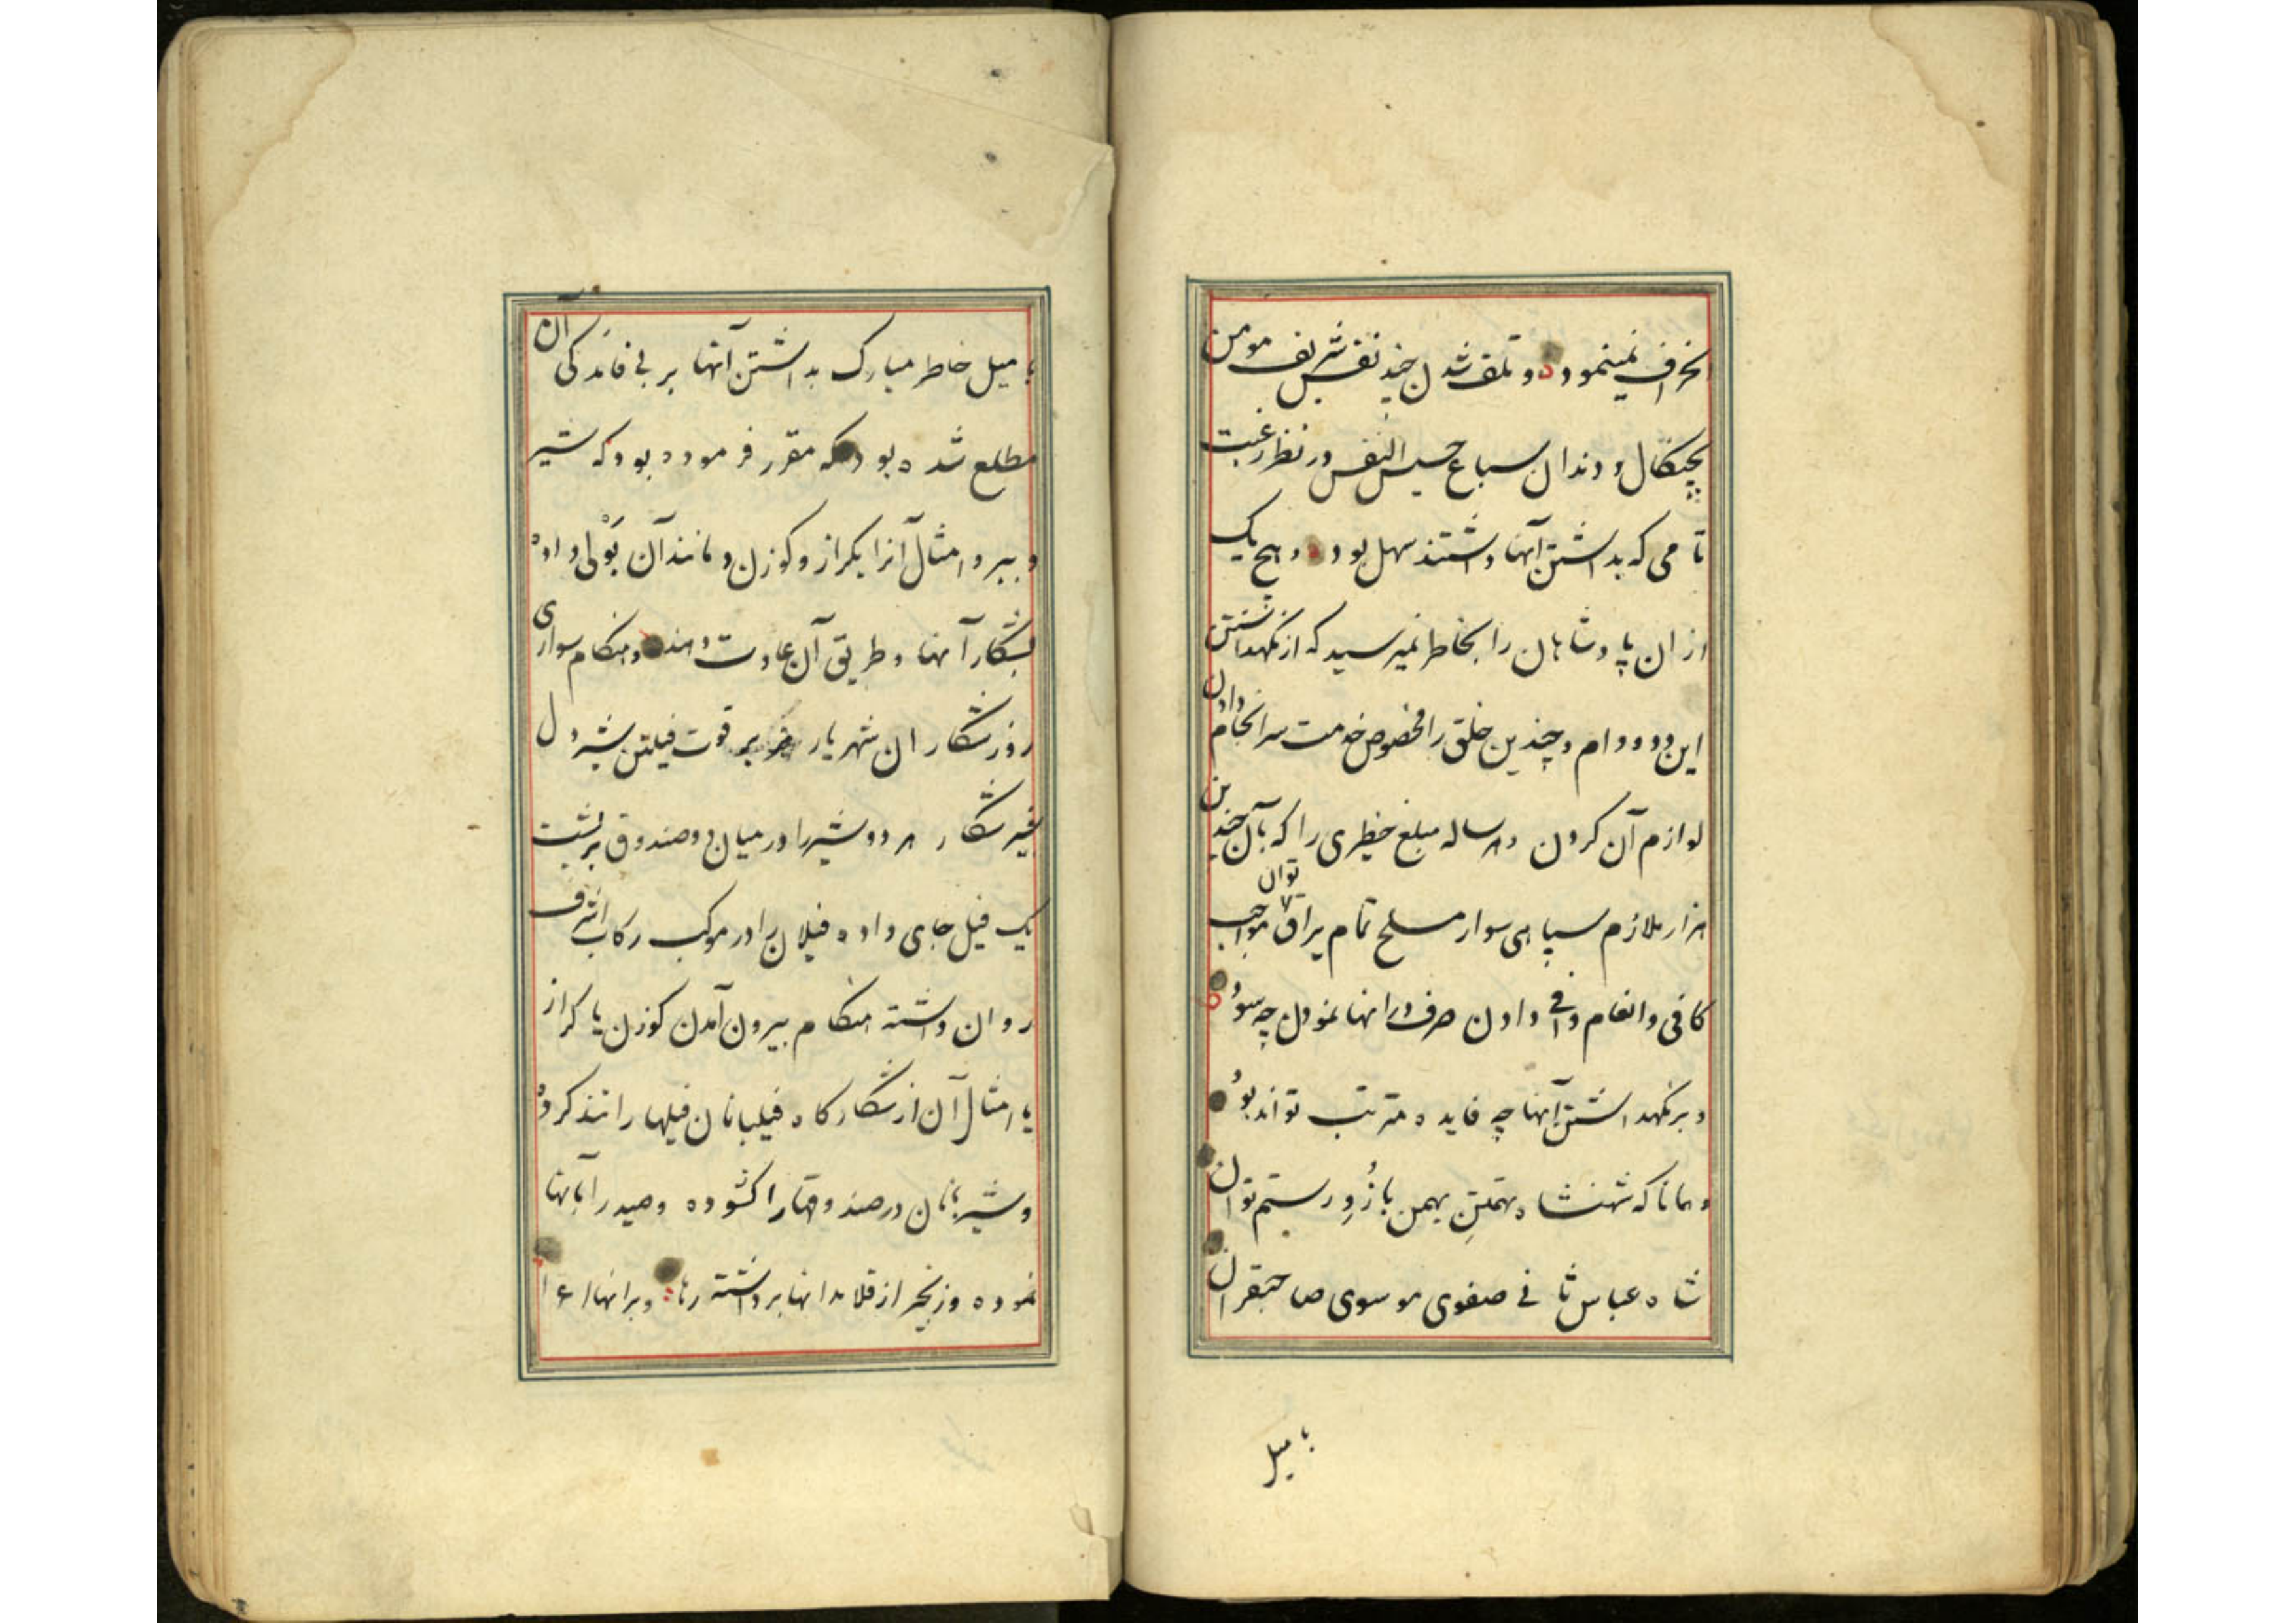 انحراف نمینمود و تلف شدن چند نفس شریف مومن
بچنکال و دندان سباع خسیس النفس در نظر رغبت
تا می که بداشتن آنها داشتند سهل بود و هیچ یک
از ان پادشاهان را بخاطر نمیرسید که از نکهداشتن
این دد و دام و چندین خلق را مخصوص خدمت سرانجام دادن
لوازم آن کردن و هر ساله مبلغ خطیری را که بآن چندین
هزار ملازم سپاهی سوار مسلح تمام یراق توان مواجب
کافی و انعام وافی دادن صرف در انها نمودن چه سود
و بر نکهداشتن آنها چه فایده مترتب تواند بود
و همانا که شهنشاه تهمتن بهمن بازو رستم توان
شاه عباس ثانی صفوی موسوی صاحبقران
با میل
با میل خاطر مبارک بداشتن آنها بر بی فائدکی آن
مطلع شده بود که مقرر فرموده بود که شیر
و ببر و امثال آنرا بکراز و کوزن و مانند آن بَوْلی داده
بشکار آنها و طریق آن عادت دهند و هنکام سواری
روز شکار ان شهریار قوت فیلتن شیردل
شکار هر دو شیر را در میان دو صندوق بر پشت
یک فیل جای داده فیلان را در موکب رکاب اشرف
روان داشته هنکام بیرون آمدن کوزن یا کراز
یا امثال آن از شکارکاه فیلبانان فیلها را تند کرده
و شیربانان در صندوقها را کشوده و صید را بآنها
نموده و زنجیر از قلاده انها برداشته رها و بر انها اغرا